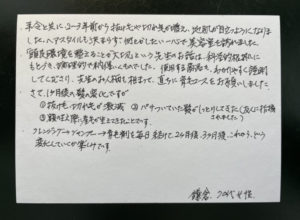 年令と共に、2〜3年前から抜け毛や切れ毛が増え、地肌が目立つようになりました。
ヘアスタイルも決まらず、何とかしたい一心で美容室を訪ねました。
「頭皮環境を整えることが大切」という先生のお話は、科学的根拠にも
とづき、納得いくものでした。使用する商品も、わかりやすく説明
して下さり、先生のお人柄も相まって、直ちに育毛コースをお願いしました。
さて、1ヶ月後の髪の変化ですが
①抜け毛・切れ毛が激減 ②パサついていた髪がしっとりしてきた(友人に指摘
されました)
③額の生え際に産毛が生えてきたことです。
クレンジング→シャンプー→育毛剤を毎日続けて、2ヶ月後、3ヶ月後、これから、どう
変化していくか楽しみです。
鎌倉 70代女性